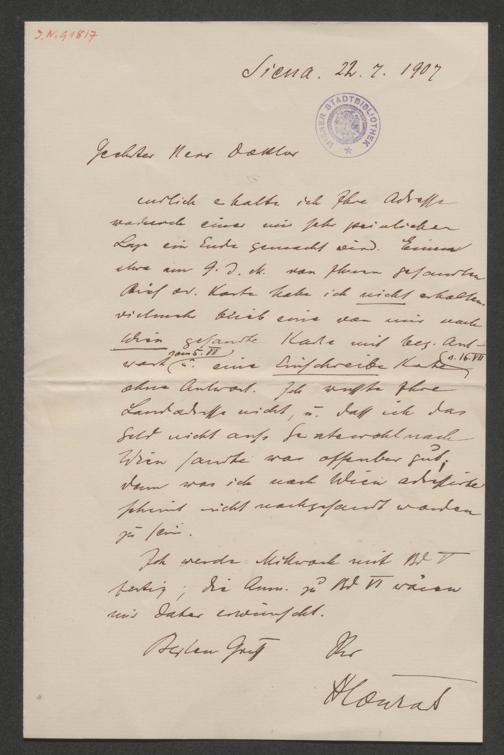 J.N. 91817
Siena. 22. 7. 1907
WIENER STADTBIBLIOTHEK
Geehrter Herr Doktor
endlich erhalte ich Ihre Adresse
wodurch einer mir sehr peinlichen
Lage ein Ende gemacht wird. Einen
etwa am 9. d. M. von Ihnen gesandten
Brief od. Karte habe ich nicht erhalten
vielmehr blieb eine von mir nach
Wien gesandte Karte mit bez. Ant-
wort (vom 5. VII) u. eine Einschreibe Karte (v. 16. VII)
ohne Antwort. Ich wusste Ihre
Landadresse nicht, u. daß ich das
Geld nicht aufs Geratewohl nach
Wien sandte was offenbar gut;
denn was ich nach Wien adressirte
scheint nicht nachgesandt worden
zu sein.
Ich werde Mittwoch mit Bd V
fertig; die Anm. zu Bd VI wären
mir daher erwünscht.
Besten Gruß Ihr
HConrat